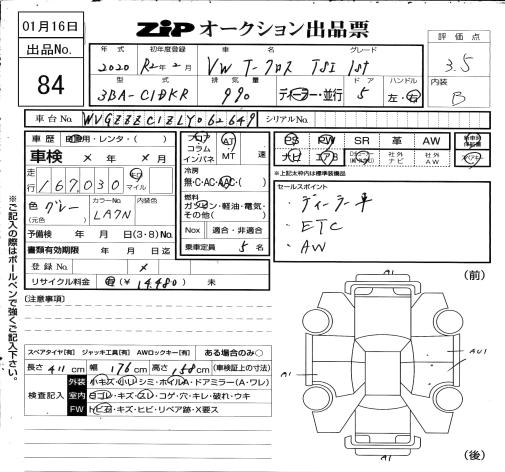 01月16日
出品No.
84
ZIP オークション出品票
評価点
3.5
内装
B
年式 初年度登録 車名 グレード
2020 R2年2月 VW T-クロス TSI 1st
型式 排気量 ドア ハンドル
3BA-C1DKR 990 ディーラー・並行 5 左・右
車台No. WVGZZZC1ZLY062649 シリアルNo.
車歴 自家用・レンタ・( )
車検 × 年 × 月
走行 167,030 km マイル
色 グレー カラーNo. LA7N 内装色
(元色)
予備検 年 月 日(3・8)No.
書類有効期限 年 月 日迄
登録No. ×
リサイクル料金 有(¥ 14,480) 未
フロア AT
コラム
インパネ MT 速
冷房
無・C・AC・AAC・( )
燃料
ガソリン・軽油・電気・
その他( )
Nox 適合・非適合
乗車定員 5 名
PS PW SR 革 AW
ナビ エアB 社外ナビ 社外AW
新車時保証書
スペアキー
*上記太枠内は標準装備品
セールスポイント
・ディーラー車
・ETC
・AW
[注意事項]
スペアタイヤ[有] ジャッキ工具[有] AWロックキー[有] ある場合のみ〇
長さ 411 cm 幅 176 cm 高さ 158 cm (車検証上の寸法)
検査記入
外装 小キズ・小U・シミ・ホイルA・ドアミラー(A・ワレ)
室内 ヨゴレ・キズ・スレ・コゲ・穴・キレ・破れ・ウキ
FW トビ石・キズ・ヒビ・リペア跡・X要ス
(前)
A1
A1
AU1
A1
(後)
※ご記入の際はボールペンで強くご記入下さい。